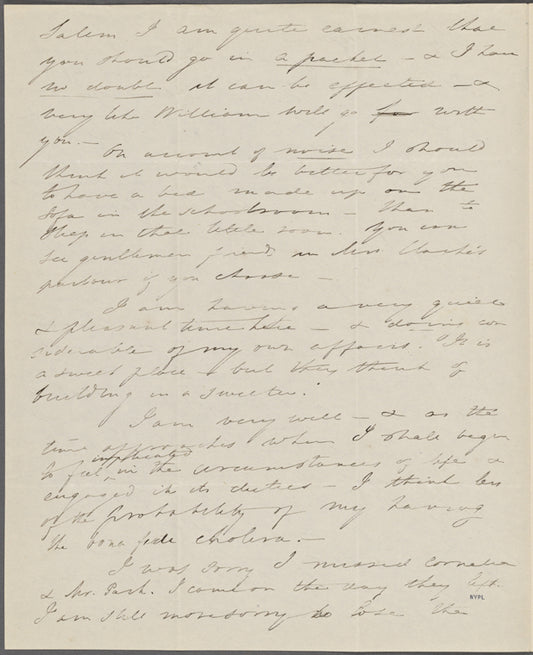 Salem I am quite earnest that
you should go in a packet – & I have
no doubt it can be effected – &
very like William will go for with
you. –
On account of noise I should
think it would be better for you
to have a bed made up on the
Sofa in the schoolroom – than to
sleep in that little room. You can
see gentlemen friends in Mrs Clarke's
parlour if you choose –
I am having a very quiet
& pleasant time here – & doing con
siderable of my own affairs. It is
a sweet place – but they think of
building in a sweeter.
I am very well – & as the
time approaches when I shall begin
to feel implicated in the circumstances of life &
engaged in its duties – I think less
of the probability of my having
the bona fide cholera. –
I was sorry I missed Cornelia
& Mr. Park. I came on the day they left.
I am still more sorry to lose the
NYPL